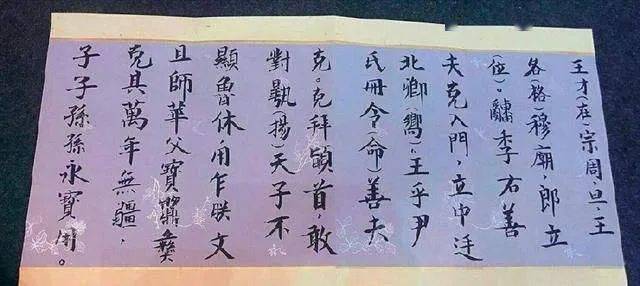 王才(在)宗周,旦,王
各(格)穆廟,即立
(位)。季右善
夫克入門,立中廷
北鄉(嚮),王乎尹
氏冊令(命)善夫
克。克拜首,敢
對(揚)天子不
顯魯休,用乍朕文
且師華父寶彝
克其萬年無疆,
子子孫孫永寶用。